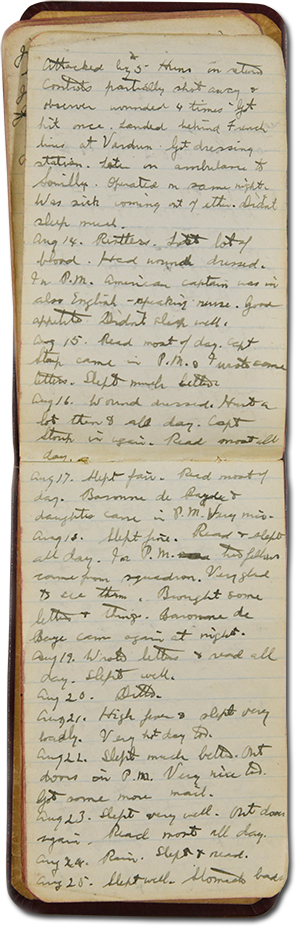 Attacked by 5 Huns in
Controls partially shot away &
observer wounded 4 times. Got
hit once. Landed behind French
lines at Verdun. Got dressing
station. Later in ambulance to
Souilly. Operated on same night.
Was sick coming out of ether. Didnt
sleep much.
Aug 14. Restless. Lost lot of
blood. Head wound dressed.
In P.M. American captain was in
also English-speaking nurse. Good
appetite. Didnt sleep well.
Aug 15. Read most of day. Capt
came in P.M. & I wrote some
letters. Slept much better.
Aug 16. Wound dressed. Hurt a
lot then & all day. Capt
in again. Read most all
day.
Aug 17. Slept fair. Read most of
day. Baronne de &
daughter came in P.M. Very nice.
Aug 18. Slept fine. Read & slept
all day. In P.M. two fellows
came from squadron. Very glad
to see them. Brought some
letters & things. Baronne de
came again at night.
Aug 19. Wrote letters & read all
day. Slept well.
Aug 20. Ditto.
Aug 21. High fever & slept very
badly. Very hot day too.
Aug 22. Slept much better. Out
doors in P.M. Very nice too.
Got some more mail.
Aug 23. Slept very well. Out doors
again. Read most all day.
Aug 24. Rain. Slept & read.
Aug 25. Slept well. Stomach bad